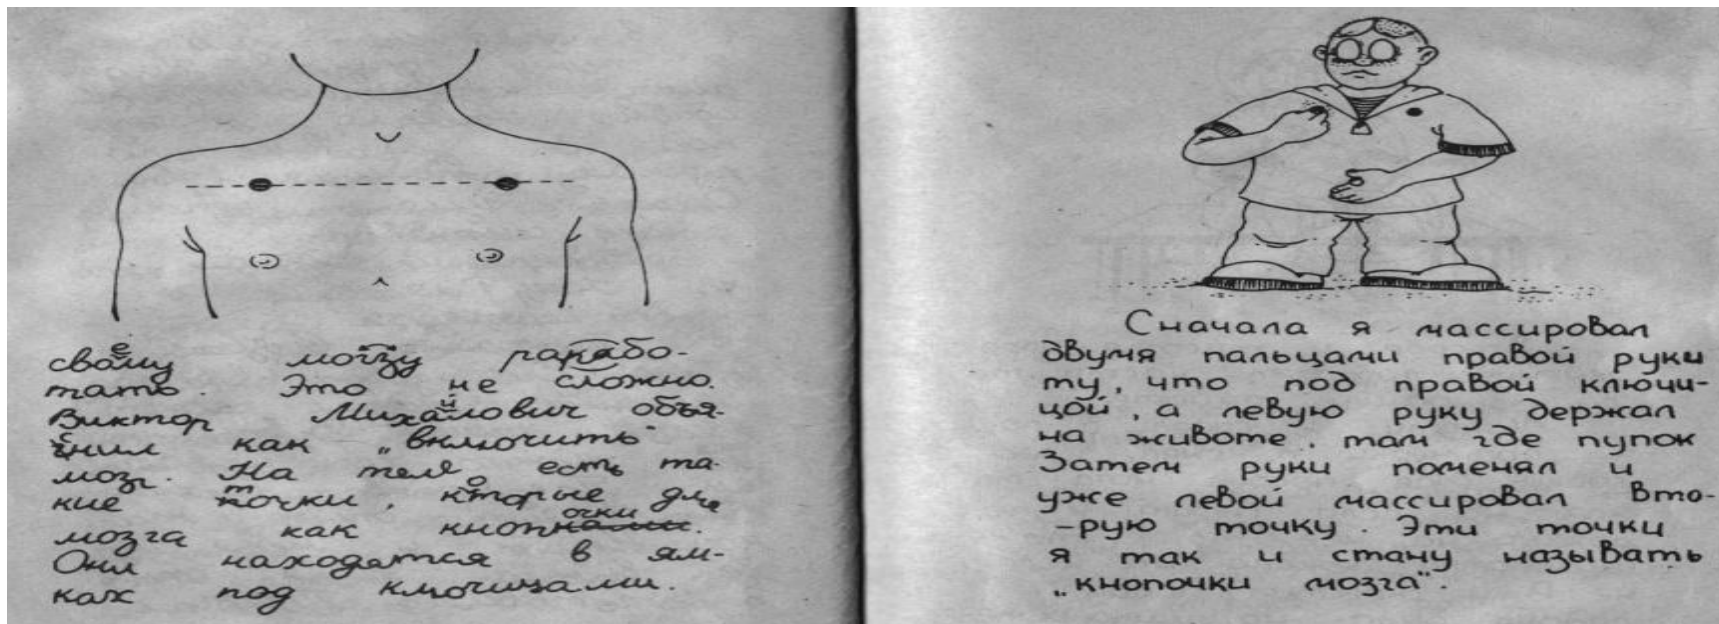 своему мозгу рабо-
тать. Это не сложно.
Виктор Михайлович объя-
снил как „включить"
мозг. На теле есть та-
кие точки, которые для
мозга как кнопочки.
Они находятся в ям-
ках под ключицами.
Сначала я массировал
двумя пальцами правой руки
ту, что под правой ключи-
цой, а левую руку держал
на животе, там где пупок
Затем руки поменял и
уже левой массировал вто-
-рую точку. Эти точки
я так и стану называть
„кнопочки мозга".